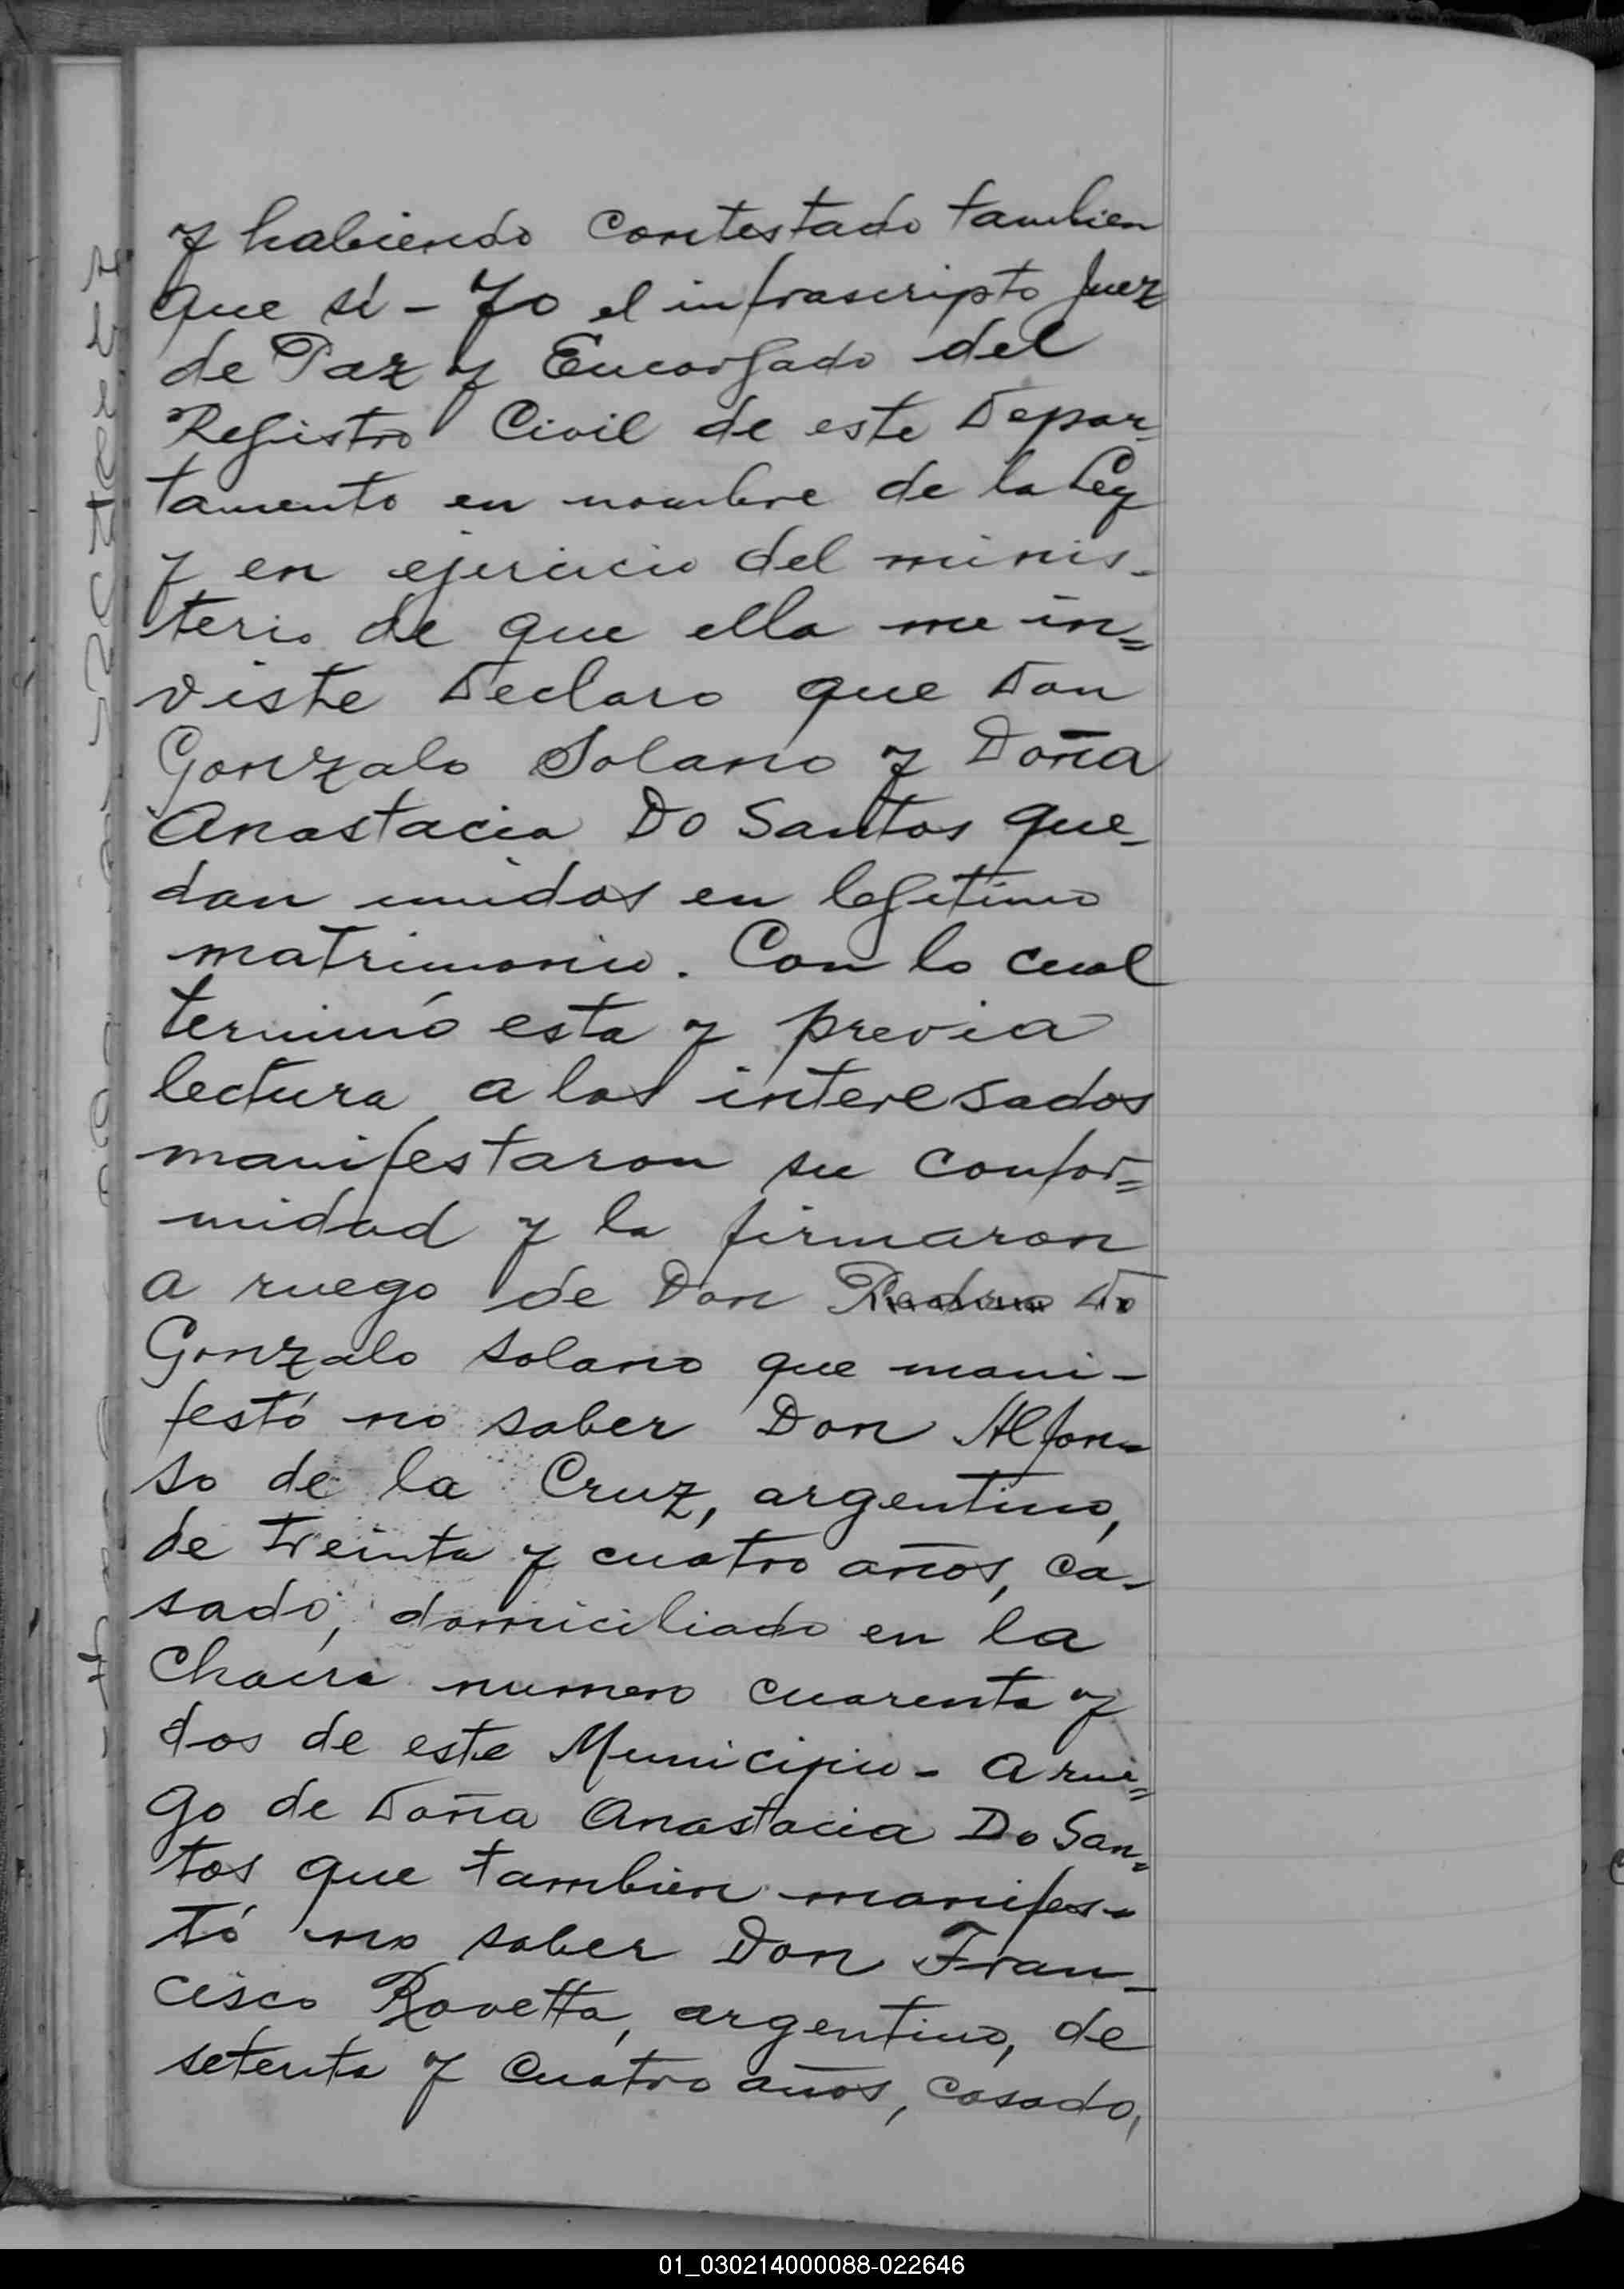 y habiendo contestado tambien
que sí - Yo el infrascripto Juez
de Paz y Encargado del
Registro Civil de este Depar-
tamento en nombre de la Ley
y en ejercicio del minis-
terio de que ella me in=
viste Declaro que Don
Gonzalo Solano y Doña
Anastacia Do Santos que-
dan unidos en legitimo
matrimonio. Con lo cual
terminó esta y previa
lectura a los interesados
manifestaron su confor=
midad y la firmaron
a ruego de Don
Gonzalo Solano que mani-
festó no saber Don Alfon-
so de la Cruz, argentino,
de treinta y cuatro años, ca-
sado, domiciliado en la
Chacra numero cuarenta y
dos de este Municipio - A rue=
go de Doña Anastacia Do San=
tos que tambien manifes-
tó no saber Don Fran-
cisco Rovetta, argentino, de
setenta y cuatro años, casado,
01_030214000088-022646